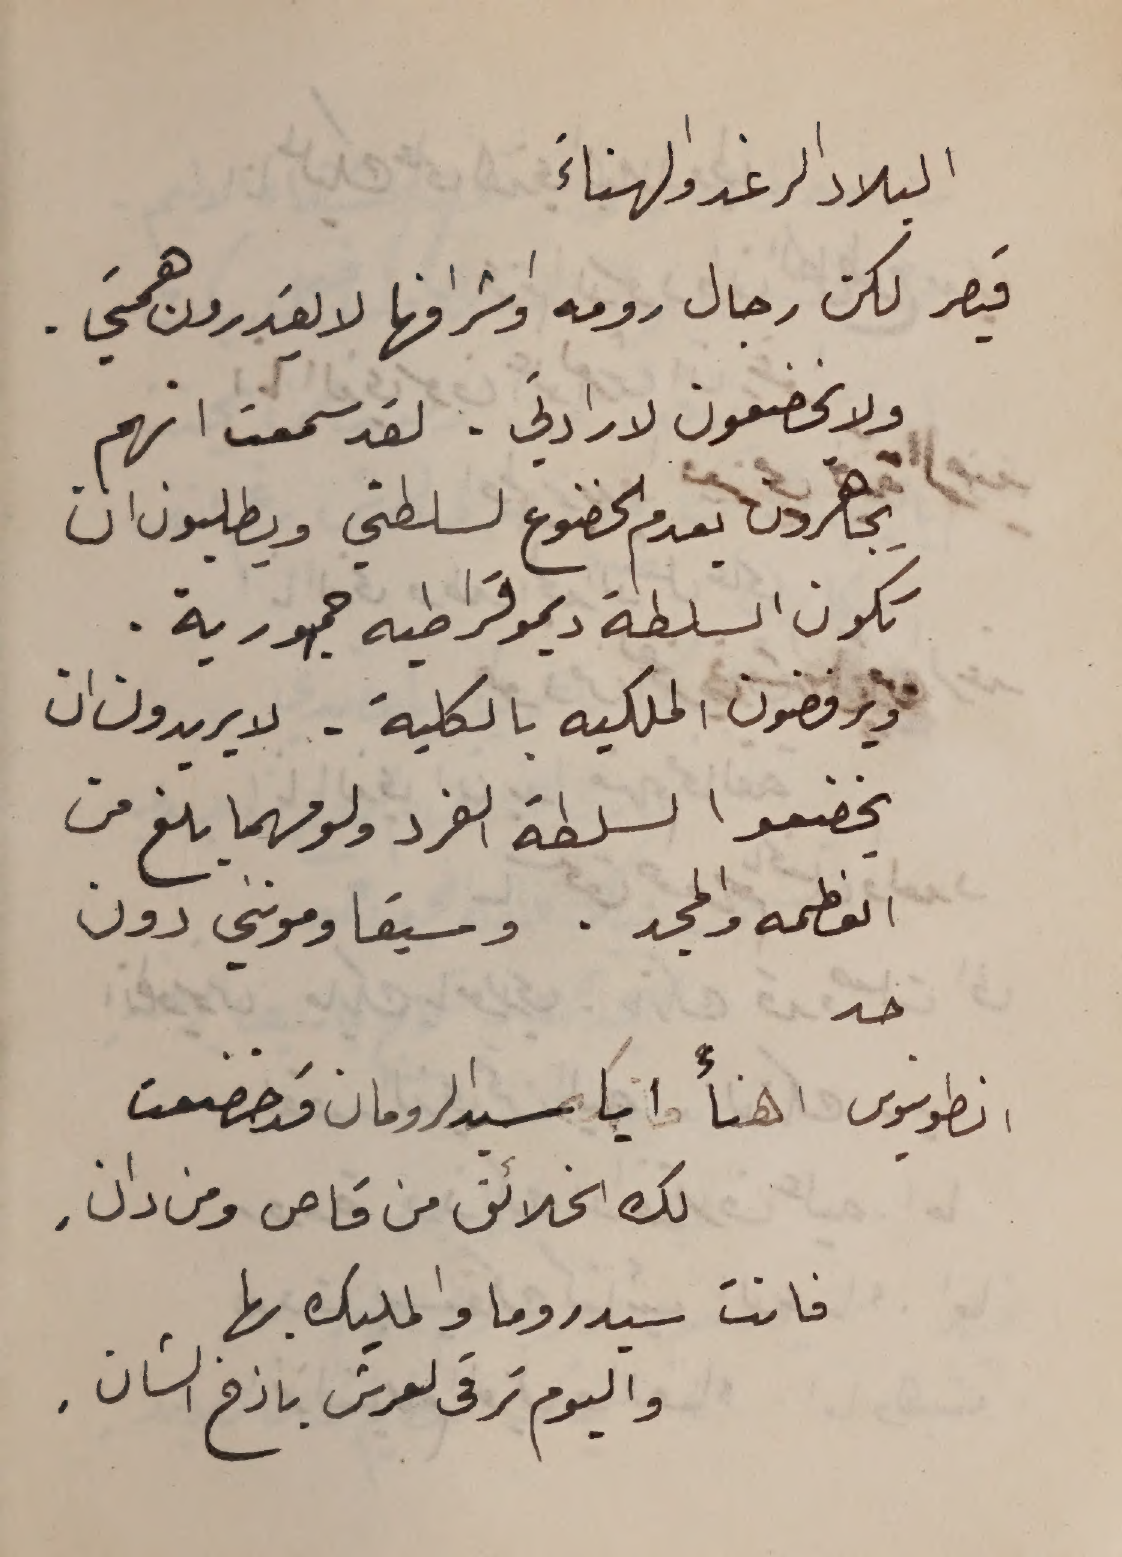 البلاد الرغد والهناءَ
قيصر لكن رجال رومه واشرافها لا يقدرون همتي .
ولا يخضعون لارادتي . لقد سمعت انهم
يجاهرون بعدم الخضوع لسلطتي ويطلبون ان
تكون السلطة ديموقراطيه جمهورية .
ويرفضون الملكيه بالكلية . لا يريدون ان
يخضعوا لسلطة الفرد ولو مهما بلغ من
العظمه والمجد . وسيقاوموننى دون
حد
انطونيوس اهنأ سيد الرومان قد خضعت
لك الخلائق من قاص ومن دان .
فانت سيد روما والمليك بها
واليوم ترقى لعرش باذخ الشان .